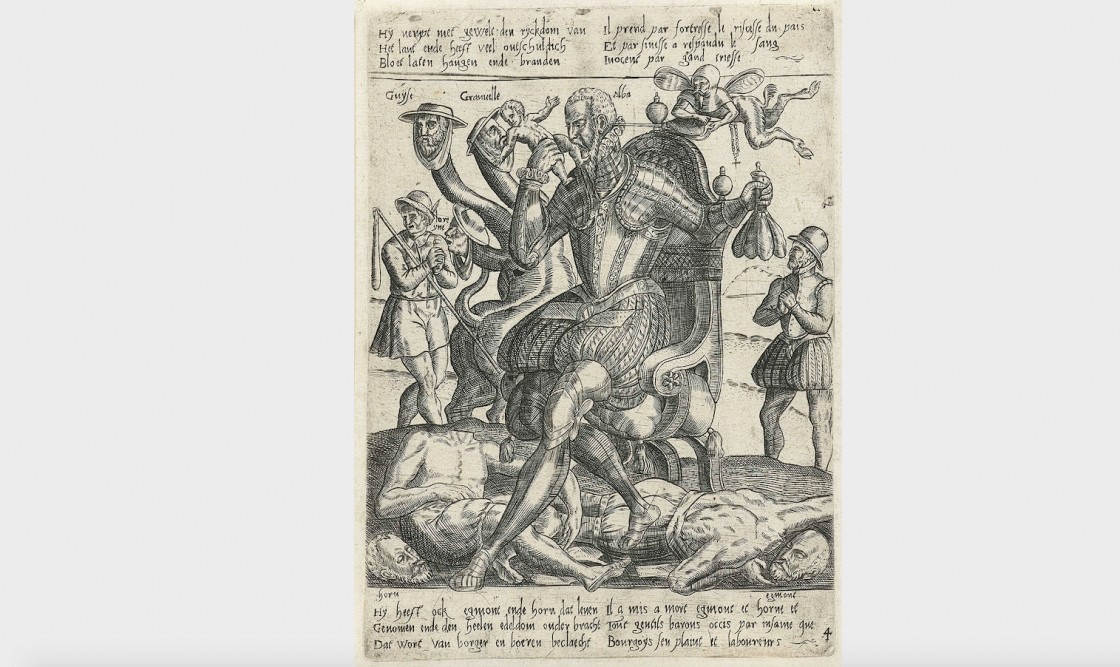 Hy neemt met gewelt den ryckdom van
Het lant ende heeft veel onschuldich
Bloet laten hangen ende branden
Il prend par fortresse le richesse du pais
Et par finesse a respandu le sang
Inocent par gand triesse
Guyse
Granvelle
Alba
horn
egmont
Hy heeft ock egmont ende horn dat leven
Genomen ende den heelen edeldom onder bracht
Dat wort van borger en boeren beclaecht
Il a mis a mort egmont et horne et
Tout gentils barons occis par insame que
Bourgoys sen plaint et laboureurs
4